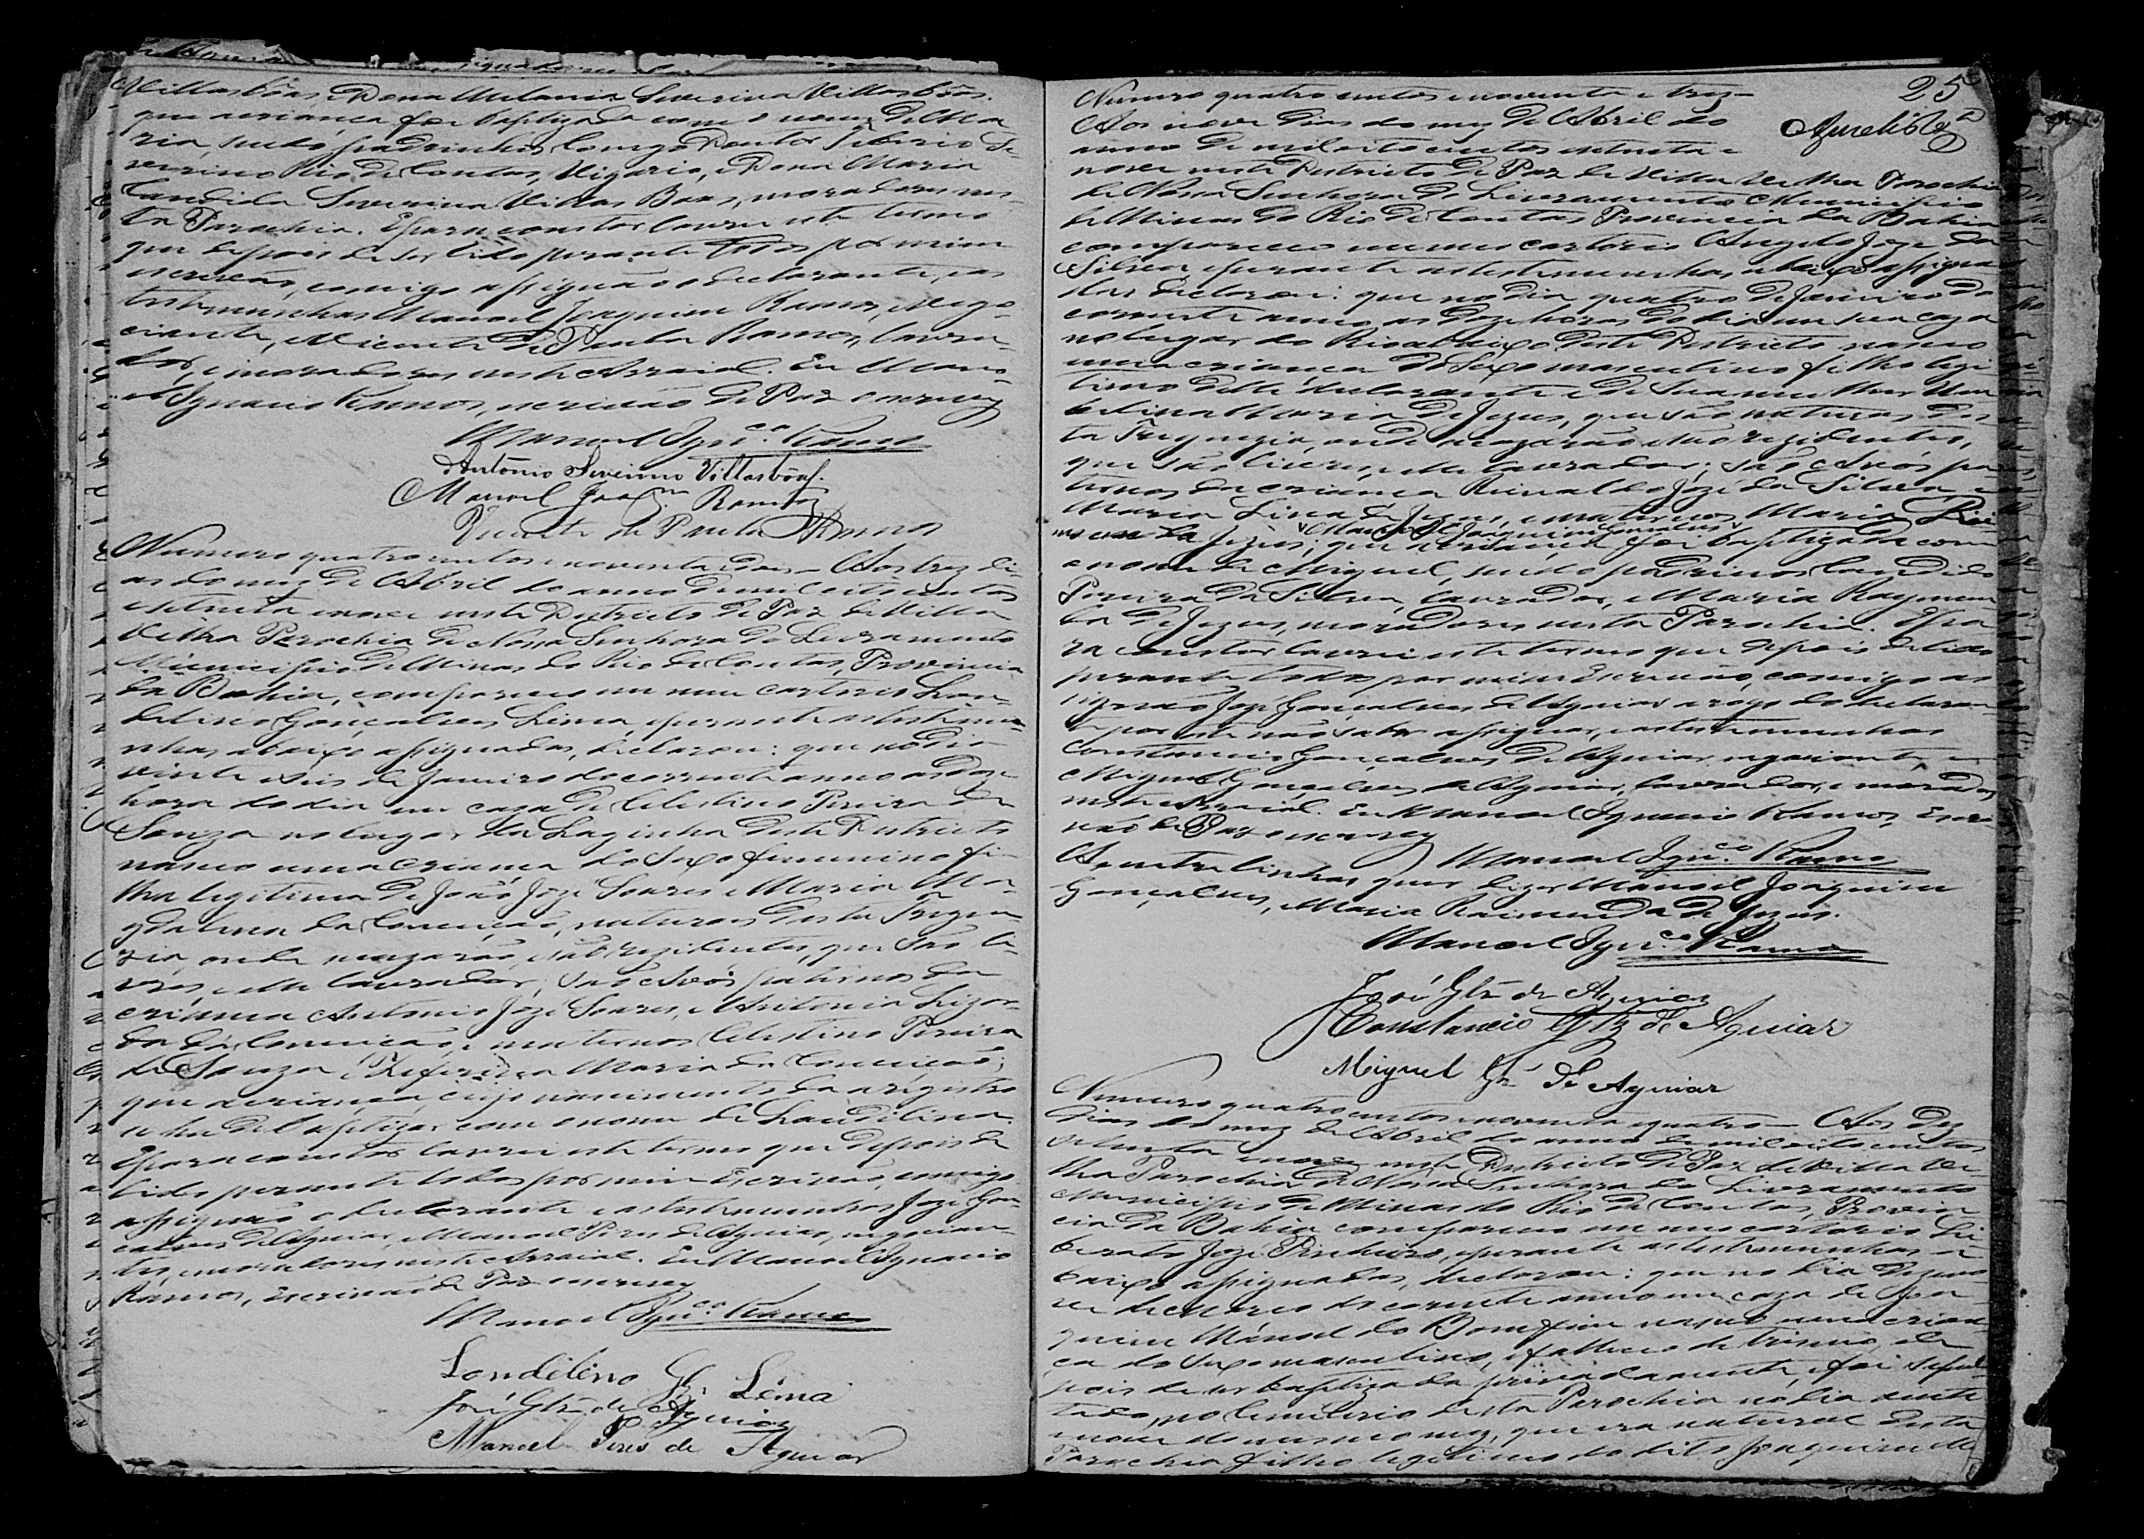 Villasbôas, e Dona Melania Severina Villasbôas.
que acriança foi baptizada com o nome de Ma-
ria, sendo padrinhos Conego Doutor Tiberio Se-
verino Rio de Contas, Vigario, e Dona Maria
Candida Severina Villas Boas, moradores nes-
ta Parochia. Epara constar lavrei este termo
que depois de ser lido perante todos por mim
escrivão, comigo assignão o declarante, eas
testemunhas Manoel Joaquim Ramos, Nego-
ciante, e Vicente de Paula Ramos, lavra-
dor, e moradores neste Arraial. Eu Mano-
el Ignacio Ramos, escrivão de Paz o escrevy
Manoel Ignco. Ramos
Antônio Severino Villasbôas.
Manoel Joaqm Ramos
Vicente de Paula Ramos
Numero quatro centos enoventa edois — Aos trez di-
as do mez de Abril do anno demil oito centos
e setenta enove neste Districto de Paz de Villa
Velha Parochia de Nossa Senhora do Livramento
Municipio de Minas do Rio de Contas, Provincia
da Bahia, compareceo em meu cartorio Lan-
delino Gonçalves Lima, eperante as testimu-
nhas abaixo assignadas, declarou: que nodia
vinte e seis de Janeiro docorrente anno asdoze
hora do dia em caza de Celestino Pereira de
Souza no lugar da Laginha deste Districto
nasceo uma criança do sexo feminino fi-
lha legitima de João Joze Soares e Maria Ma-
gdalena da Conceição, naturaes desta Fregue-
zia, onde secazarão, esão rezidentes, que são li-
vres, e elle lavrador; são Avós paternos da
criança Antonio Joze Soares, e Antonia
da Conceição, e maternos Celestino Pereira
de Souza, e Maria da Conceicaõ;
que acriança, cujo nascimento da a rigistro
se hade baptizar com onome de Laudilina.
Epara constar lavrei este termo que depois de
lido perante todos por mim Escrivão, comigo
assignão o declarante eastestemunhas Joze Gon-
calves de Aguiar, e Manoel Pires de Aguiar, negocian-
tes, e moradores neste Arraial. Eu Manoel Ignacio
Ramos, Escrivão de Paz oescrevy
Manoel Ignco. Ramos
Londilino Glz Lima
José Glz de Aguiar
Manoel Pires de Aguiar
25
Numero quatro centos e noventa e trez —
Aos nove dias do mez de Abril do
anno de mil oito centos esetenta e
nove neste Districto de Paz de Villa Velha Parochia
de Nossa Senhora do Livramento Municipio
de Minas do Rio de Contas Provincia da Bahia
compareceo em meu cartorio Angelo Joze da
Silva, eperante as testemunhas abaixo assigna-
das declarou: que nodia quatro de Janeiro do
corrente anno as doze horas do dia em sua caza
no lugar do Rio abaixo deste Districto nasceo
uma criança do Sexo masculino filho legi-
timo delle declarante e de sua mulher
Maria de Jezus, que são naturaes des-
ta Freguezia, onde secazarão e são rezidentes,
que são livres, e elle lavrador; são Avós pa-
ternos da criança Reinaldo José da Silva, e
Maria de Jezus, e maternos Maria
de Jezus, que acriança foi baptizada com
onome de Miguel, sendo padrinhos Candido
Pereira da Silva, lavrador, e Maria Raymun-
da de Jezus, moradores nesta Parochia. Epa-
ra constar lavrei este termo que depois de lido
perante todos por mim Escrivão, comigo as-
signão Joze Gonçalves de Aguiar a rogo do declaran-
te por não saber assignar, e as testemunhas
Constancio Gonçalves de Aguiar, negociante, e
Miguel Gonçalves de Aguiar, lavrador, e moradores
neste Arraial. Eu Manoel Ignacio Ramos, Escri-
vão de Paz oescrevy
Manoel Ignco. Ramos
Aentrelinhas quer dizer Manoel Joaquim
Gonçalves, e Maria Raimunda de Jezus.
Manoel Ignco. Ramos
José Glz de Aguiar
Constancio Glz de Aguiar
Miguel Glz de Aguiar
Numero quatro centos enoventa equatro — Aos dez
dias do mez de Abril do anno de mil oito centos
setenta enove neste Districto de Paz de Villa Ve-
lha Parochia de Nossa Senhora do Livramento
Municipio de Minas do Rio de Contas, Provin-
cia da Bahia compareceo em meu cartorio Li-
berato Joze Pinheiro, eperante as testemunhas a-
baixo assignadas, declarou: que no dia dezeno-
ve de Março do corrente anno em caza de Joa-
quim Manoel do Bomfim nasceo uma crian-
ça do sexo masculino, e falleceo de tismo, de-
pois de ser baptizada privadamente, e foi sepul-
tado, no Cemiterio desta Parochia no dia vinte
enove do mesmo mez, que era natural desta
Parochia, filho legitimo do dito Joaquim M